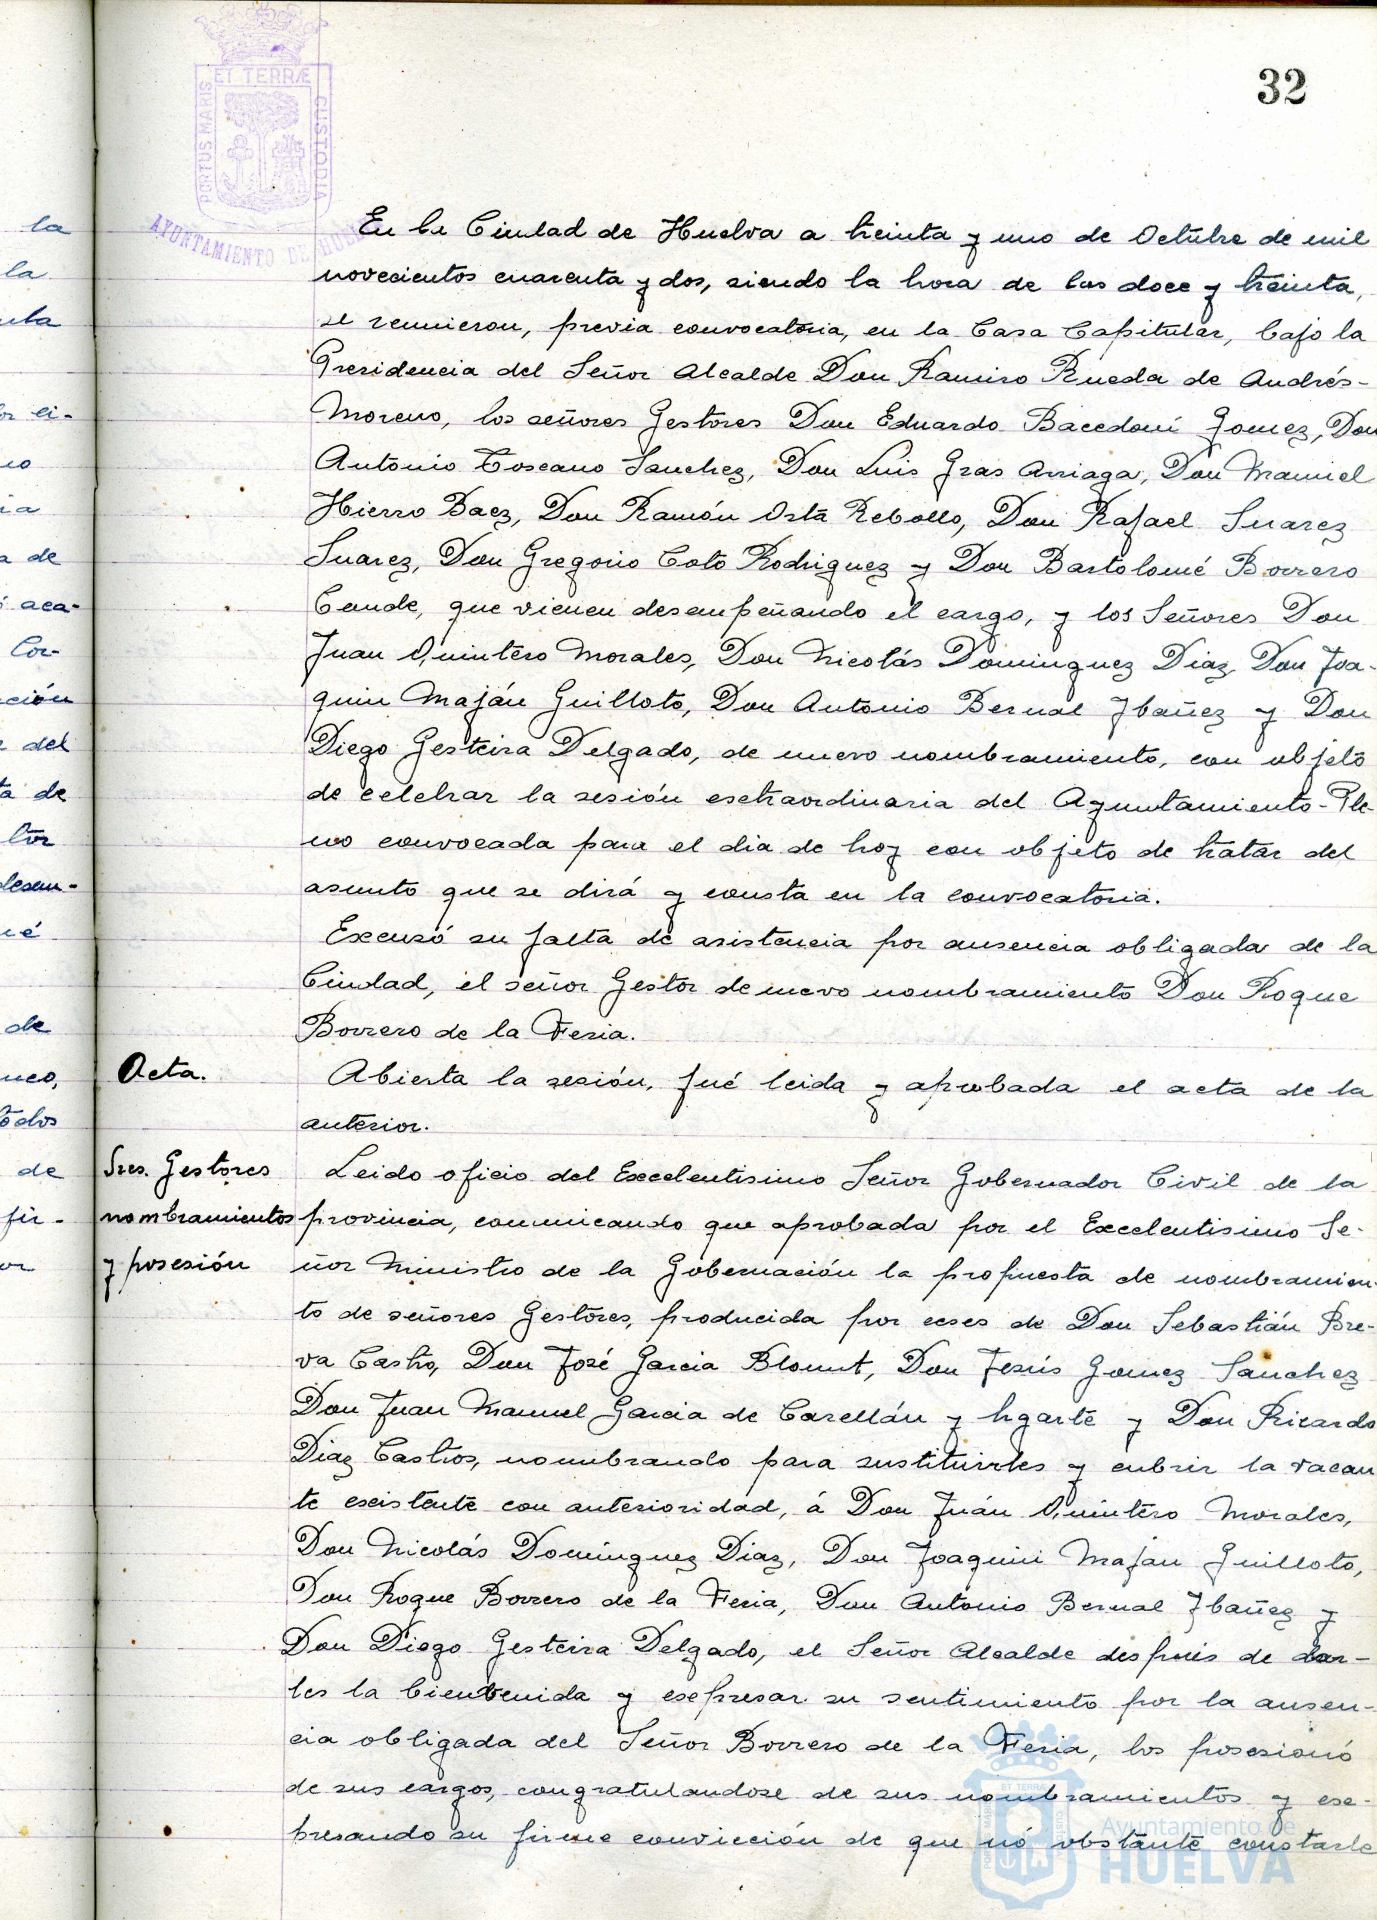 32
PORTUS MARIS ET TERRÆ CUSTODIA
AYUNTAMIENTO DE HUELVA
En la Ciudad de Huelva a treinta y uno de Octubre de mil
novecientos cuarenta y dos, siendo la hora de las doce y treinta,
se reunieron, previa convocatoria, en la Casa Capitular, bajo la
Presidencia del Señor Alcalde Don Ramiro Rueda de Andrés-
Moreno, los señores Gestores Don Eduardo Bacedoni Gomez, Don
Antonio Toscano Sanchez, Don Luis Gras Arriaga, Don Manuel
Hierro Baez, Don Ramón Orta Rebollo, Don Rafael Suarez
Suarez, Don Gregorio Coto Rodriguez y Don Bartolomé Borrero
Conde, que vienen desempeñando el cargo, y los Señores Don
Juan Quintero Morales, Don Nicolás Dominguez Diaz, Don Joa-
quin Maján Guilloto, Don Antonio Bernal Ybañez y Don
Diego Gesteira Delgado, de nuevo nombramiento, con objeto
de celebrar la sesión esctraordinaria del Ayuntamiento-Ple-
no convocada para el dia de hoy con objeto de tratar del
asunto que se dirá y consta en la convocatoria.
Excusó su falta de asistencia por ausencia obligada de la
Ciudad, el señor Gestor de nuevo nombramiento Don Roque
Borrero de la Feria.
Acta.
Abierta la sesión, fué leida y aprobada el acta de la
anterior.
Sres. Gestores
nombramientos
y posesión
Leido oficio del Excelentisimo Señor Gobernador Civil de la
provincia, comunicando que aprobada por el Excelentisimo Se-
ñor Ministro de la Gobernación la propuesta de nombramien-
to de señores Gestores, producida por ceses de Don Sebastián Bre-
va Castro, Don José Garcia Blount, Don Jesús Gomez Sanchez
Don Juan Manuel Garcia de Carellán y Ugarte y Don Ricardo
Diaz Castros, nombrando para sustituirles y cubrir la vacan
te escistente con anterioridad, á Don Juán Quintero Morales,
Don Nicolás Domínguez Diaz, Don Joaquin Majan Guilloto,
Don Roque Borrero de la Feria, Don Antonio Bernal Ybañez y
Don Diego Gesteira Delgado, el Señor Alcalde después de dar-
les la bienvenida y esepresar su sentimiento por la ausen-
cia obligada del Señor Borrero de la Feria, los posesionó
de sus cargos, congratulandose de sus nombramientos y ese-
presando su firme convicción de que nó obstante constarle
la
la
de
aca-
Cor-
ción
del
ta de
tor
desem-
de
todos
de
fir-
Ayuntamiento de
HUELVA